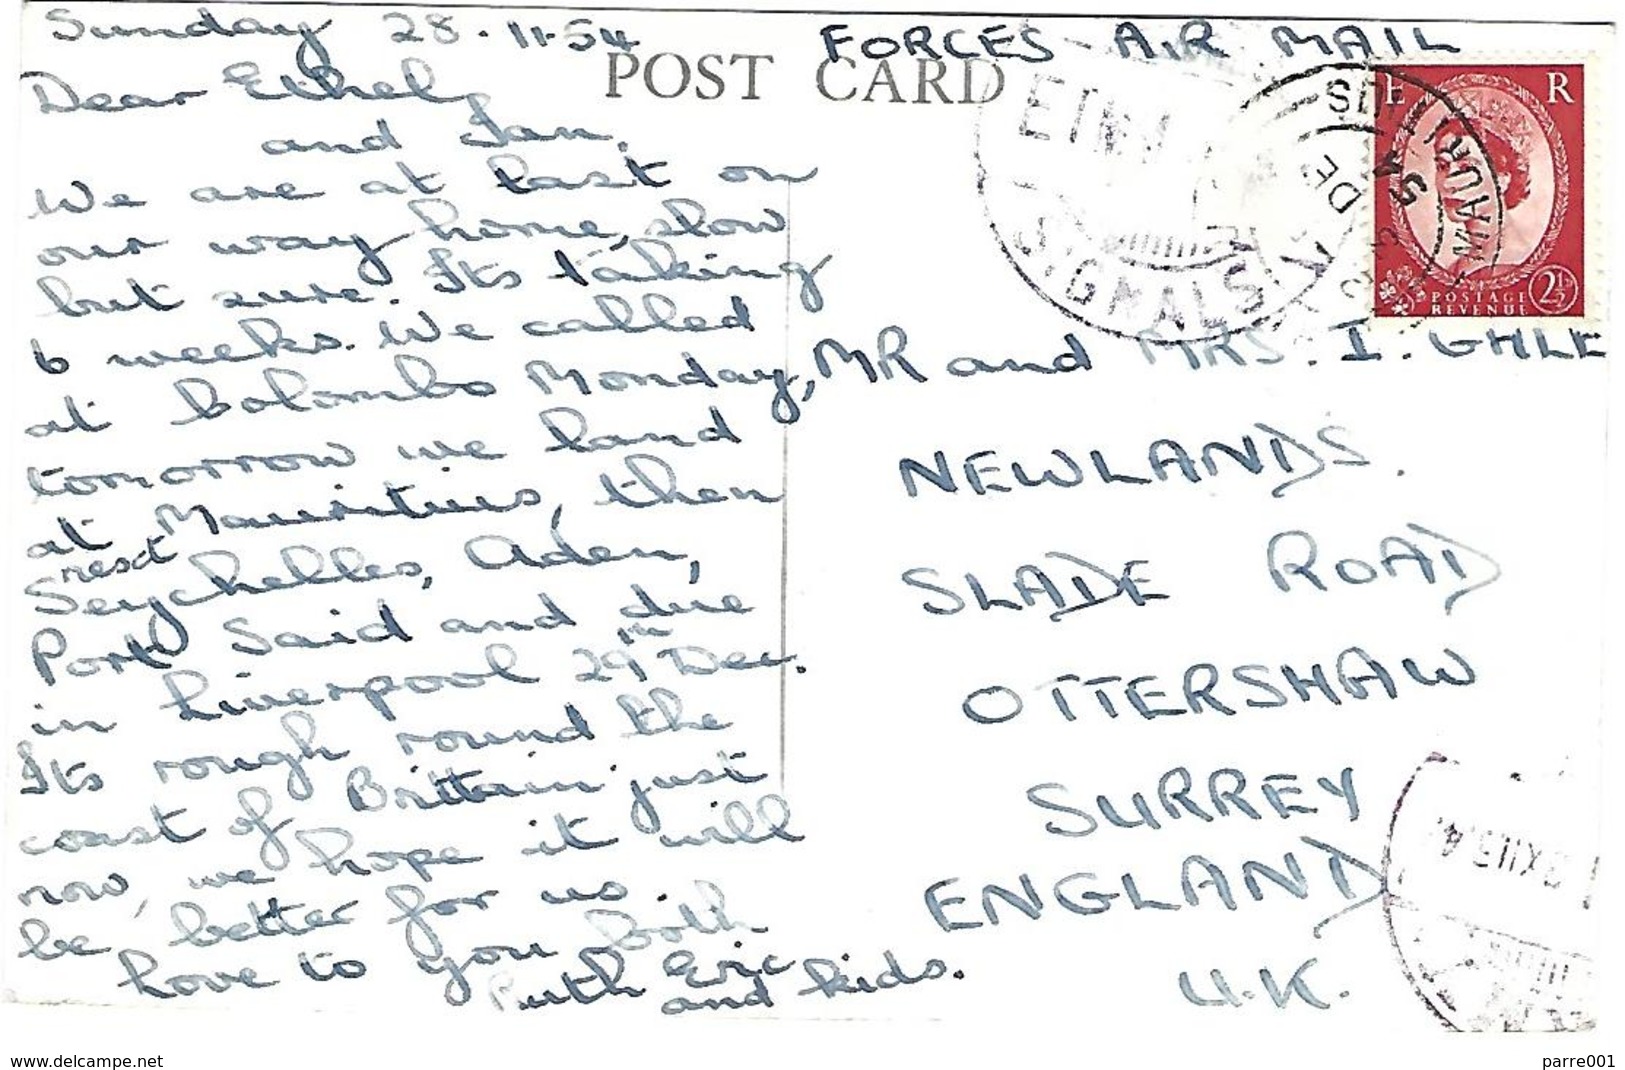 Sunday 28.11.54
POST CARD
FORCES AIR MAIL
Dear Ethel,
and Ian,
We are at last on
our way home, slow
but sure. Its taking
6 weeks. We called
at Colombo Monday,
tomorrow we land
at Mauritius, then
next
Seychelles, Aden,
Port Said and due
in Liverpool 29th Dec.
Its rough round the
coast of Brittain just
now, we hope it will
be better for us.
Love to you both
Ruth Eric
and kids.
E R
POSTAGE
REVENUE
2½D
MAURITIUS
DE
54
SIGNALS
MR and MRS. I. GHLE
NEWLANDS.
SLADE ROAD
OTTERSHAW
SURREY
ENGLAND
U.K.
XII54
www.delcampe.net
parre001